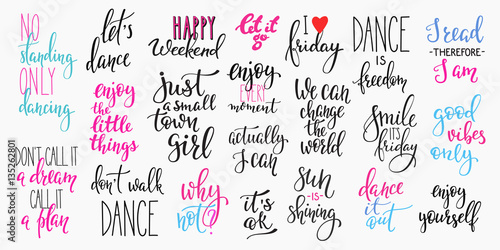 NO
standing
ONLY
dancing
DON'T CALL IT
a dream
CALL IT
a plan
let's
dance
enjoy
the
little
things
don't walk
DANCE
HAPPY
Weekend
just
a small
town
girl
why
not?
let it
go
enjoy
EVERY
moment
actually
I can
it's
ok
I ♥
friday
we can
change
the
world
sun
is
shining
DANCE
IS
freedom
smile
IT'S
friday
dance
it out
I read
- THEREFORE -
I am
good
vibes
only
enjoy
yourself
135262801